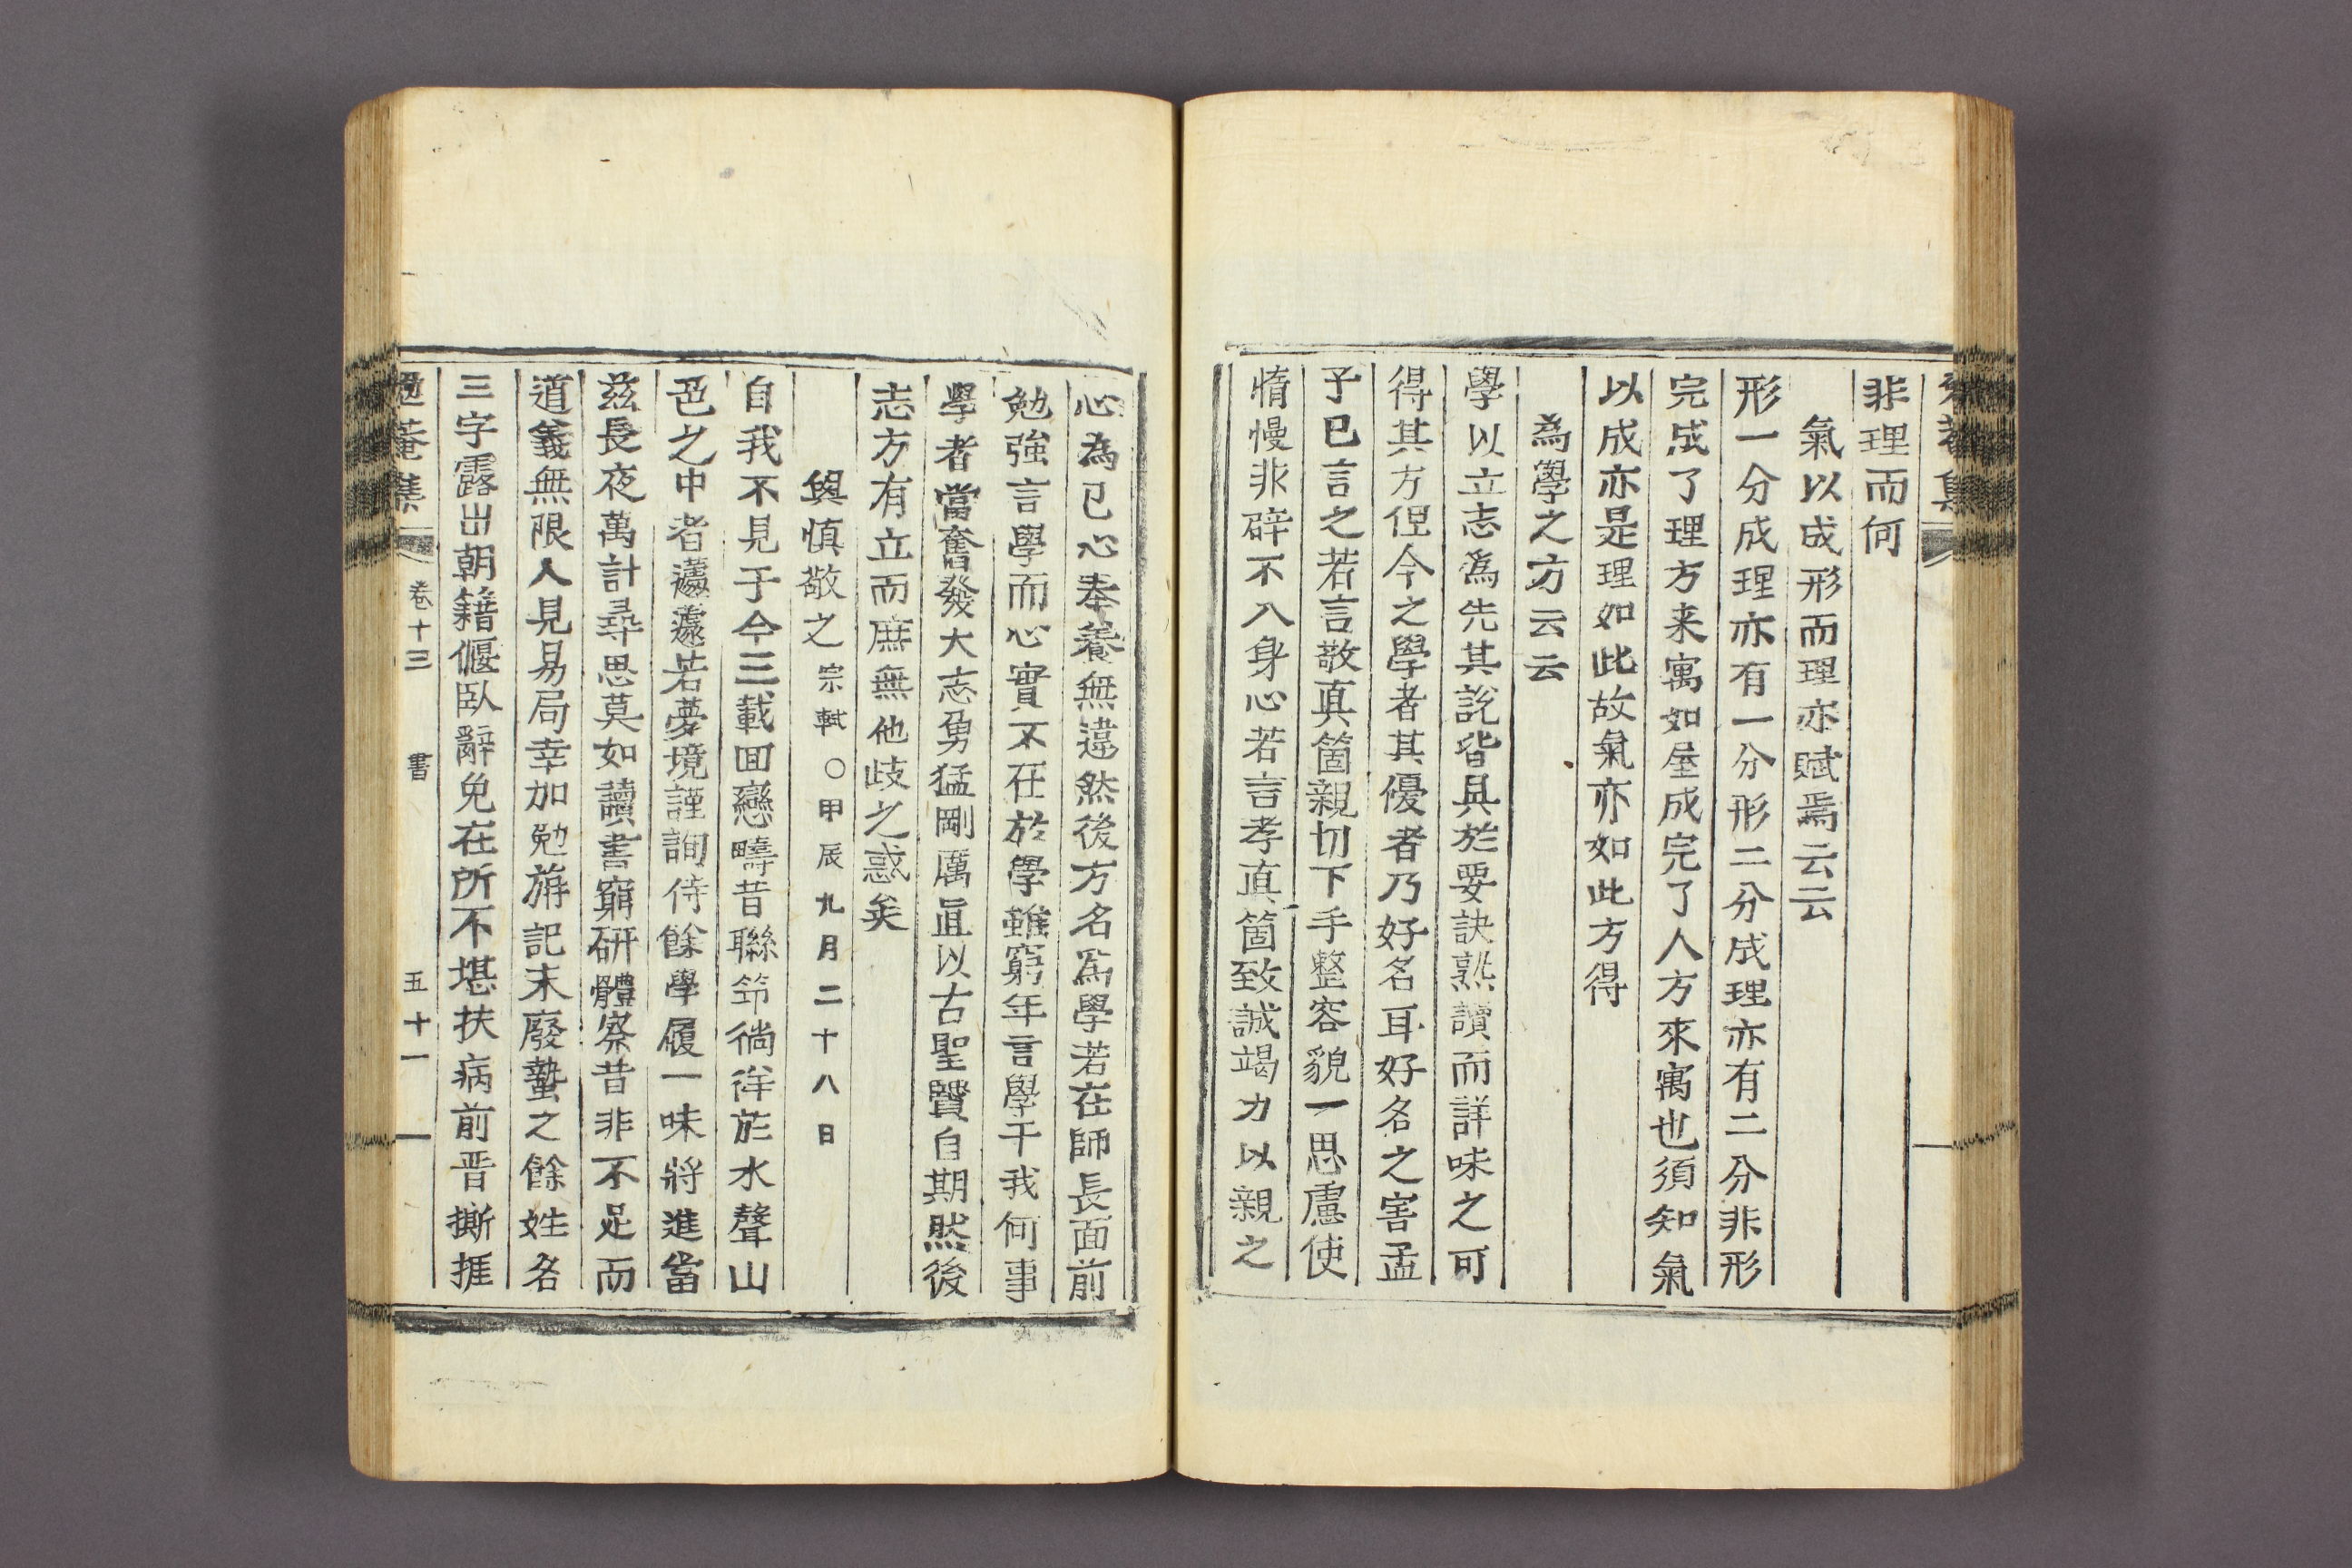 非理而何
氣以成形而理亦賦焉云云
形一分成理亦有一分形二分成理亦有二分非形
完成了理方来寓如屋成完了人方來寓也須知氣
以成亦是理如此故氣亦如此方得
為學之方云云
學以立志爲先其說皆具於要訣熟讀而詳味之可
得其方但今之學者其優者乃好名耳好名之害孟
子已言之若言敬真箇親切下手整容貌一思慮使
惰慢非辟不入身心若言孝真箇致誠竭力以親之
心為已心奉養無違然後方名爲學若在師長面前
勉強言學而心實不在於學雖窮年言學干我何事
學者當奮發大志勇猛剛厲直以古聖賢自期然後
志方有立而庶無他歧之惑矣
與慎敬之宗軾○甲辰九月二十八日
自我不見于今三載回戀疇昔聯笻徜徉於水聲山
色之中者蘧蘧若夢境謹詢侍餘學履一味將進當
茲長夜萬計尋思莫如讀書窮研體察昔非不足而
道義無限人見易局幸加勉旃記末廢蟄之餘姓名
三字露出朝籍偃臥辭免在所不堪扶病前晋撕捱
卷十三 書 五十一